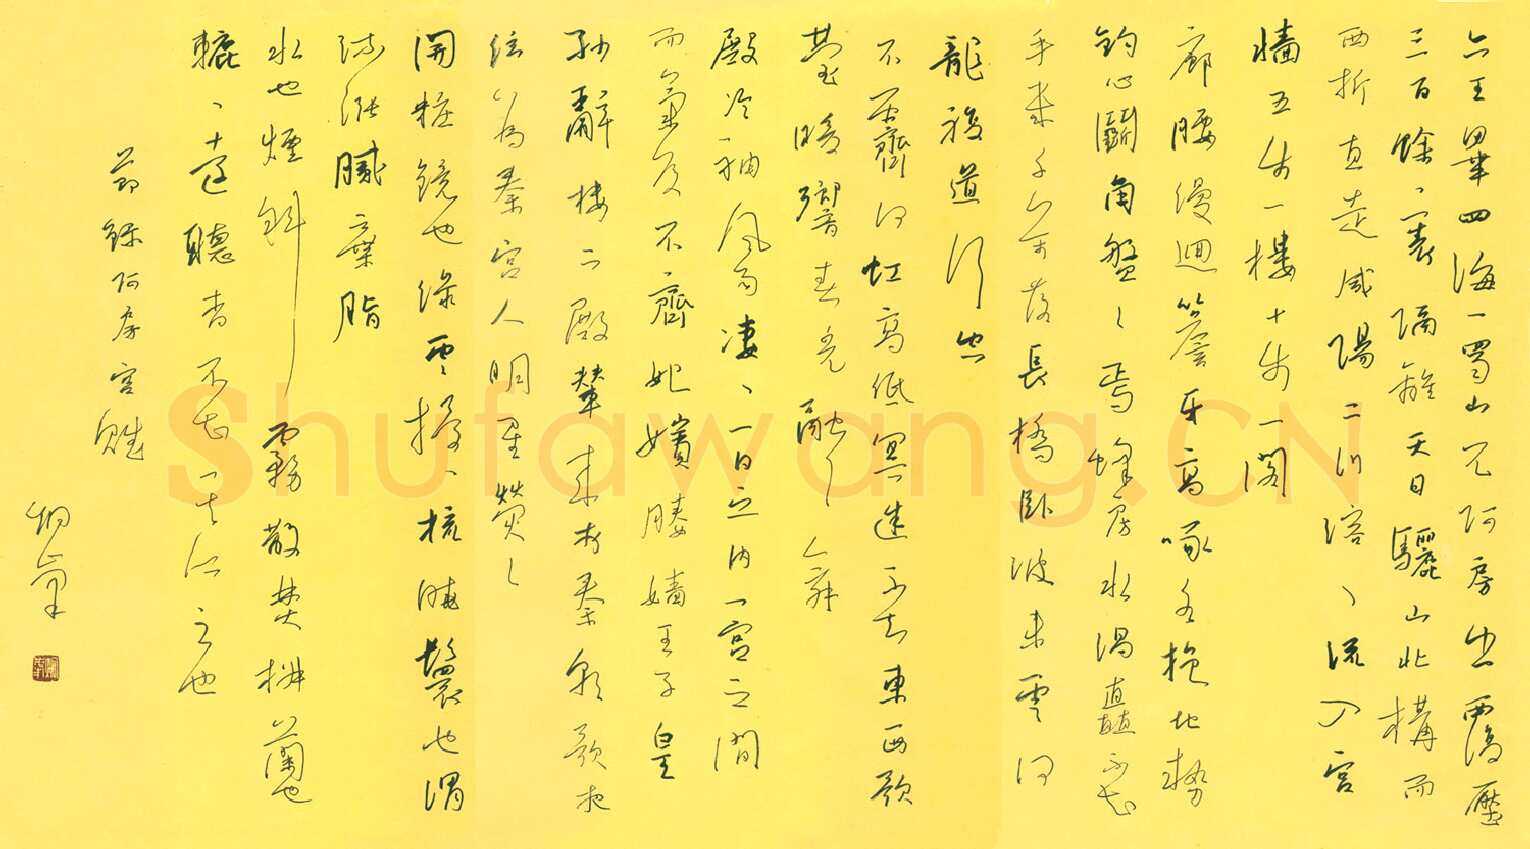 六王畢四海一蜀山兀阿房出覆壓
三百餘里隔離天日驪山北構而
西折直走咸陽二川溶、流入宮
牆五步一樓十步一閣
廊腰縵迴簷牙高啄各抱地勢
鈎心鬭角盤〻焉蜂房水渦矗不知
乎幾千萬落長橋臥波未雲何
龍複道行空
不霽何虹高低冥迷不知東西歌
臺暖響春光融〻舞
殿冷袖風雨凄、一日之內一宮之間
而氣候不齊妃嬪媵嬙王子皇
孫辭樓下殿輦來於秦朝歌夜
弦為秦宮人明星熒〻
開粧鏡也綠雲擾、梳曉鬟也渭
流漲膩棄脂
水也煙斜霧散焚椒蘭也
轆、遠聽杳不知其所之也
節錄阿房宮賦
Shufawang.CN